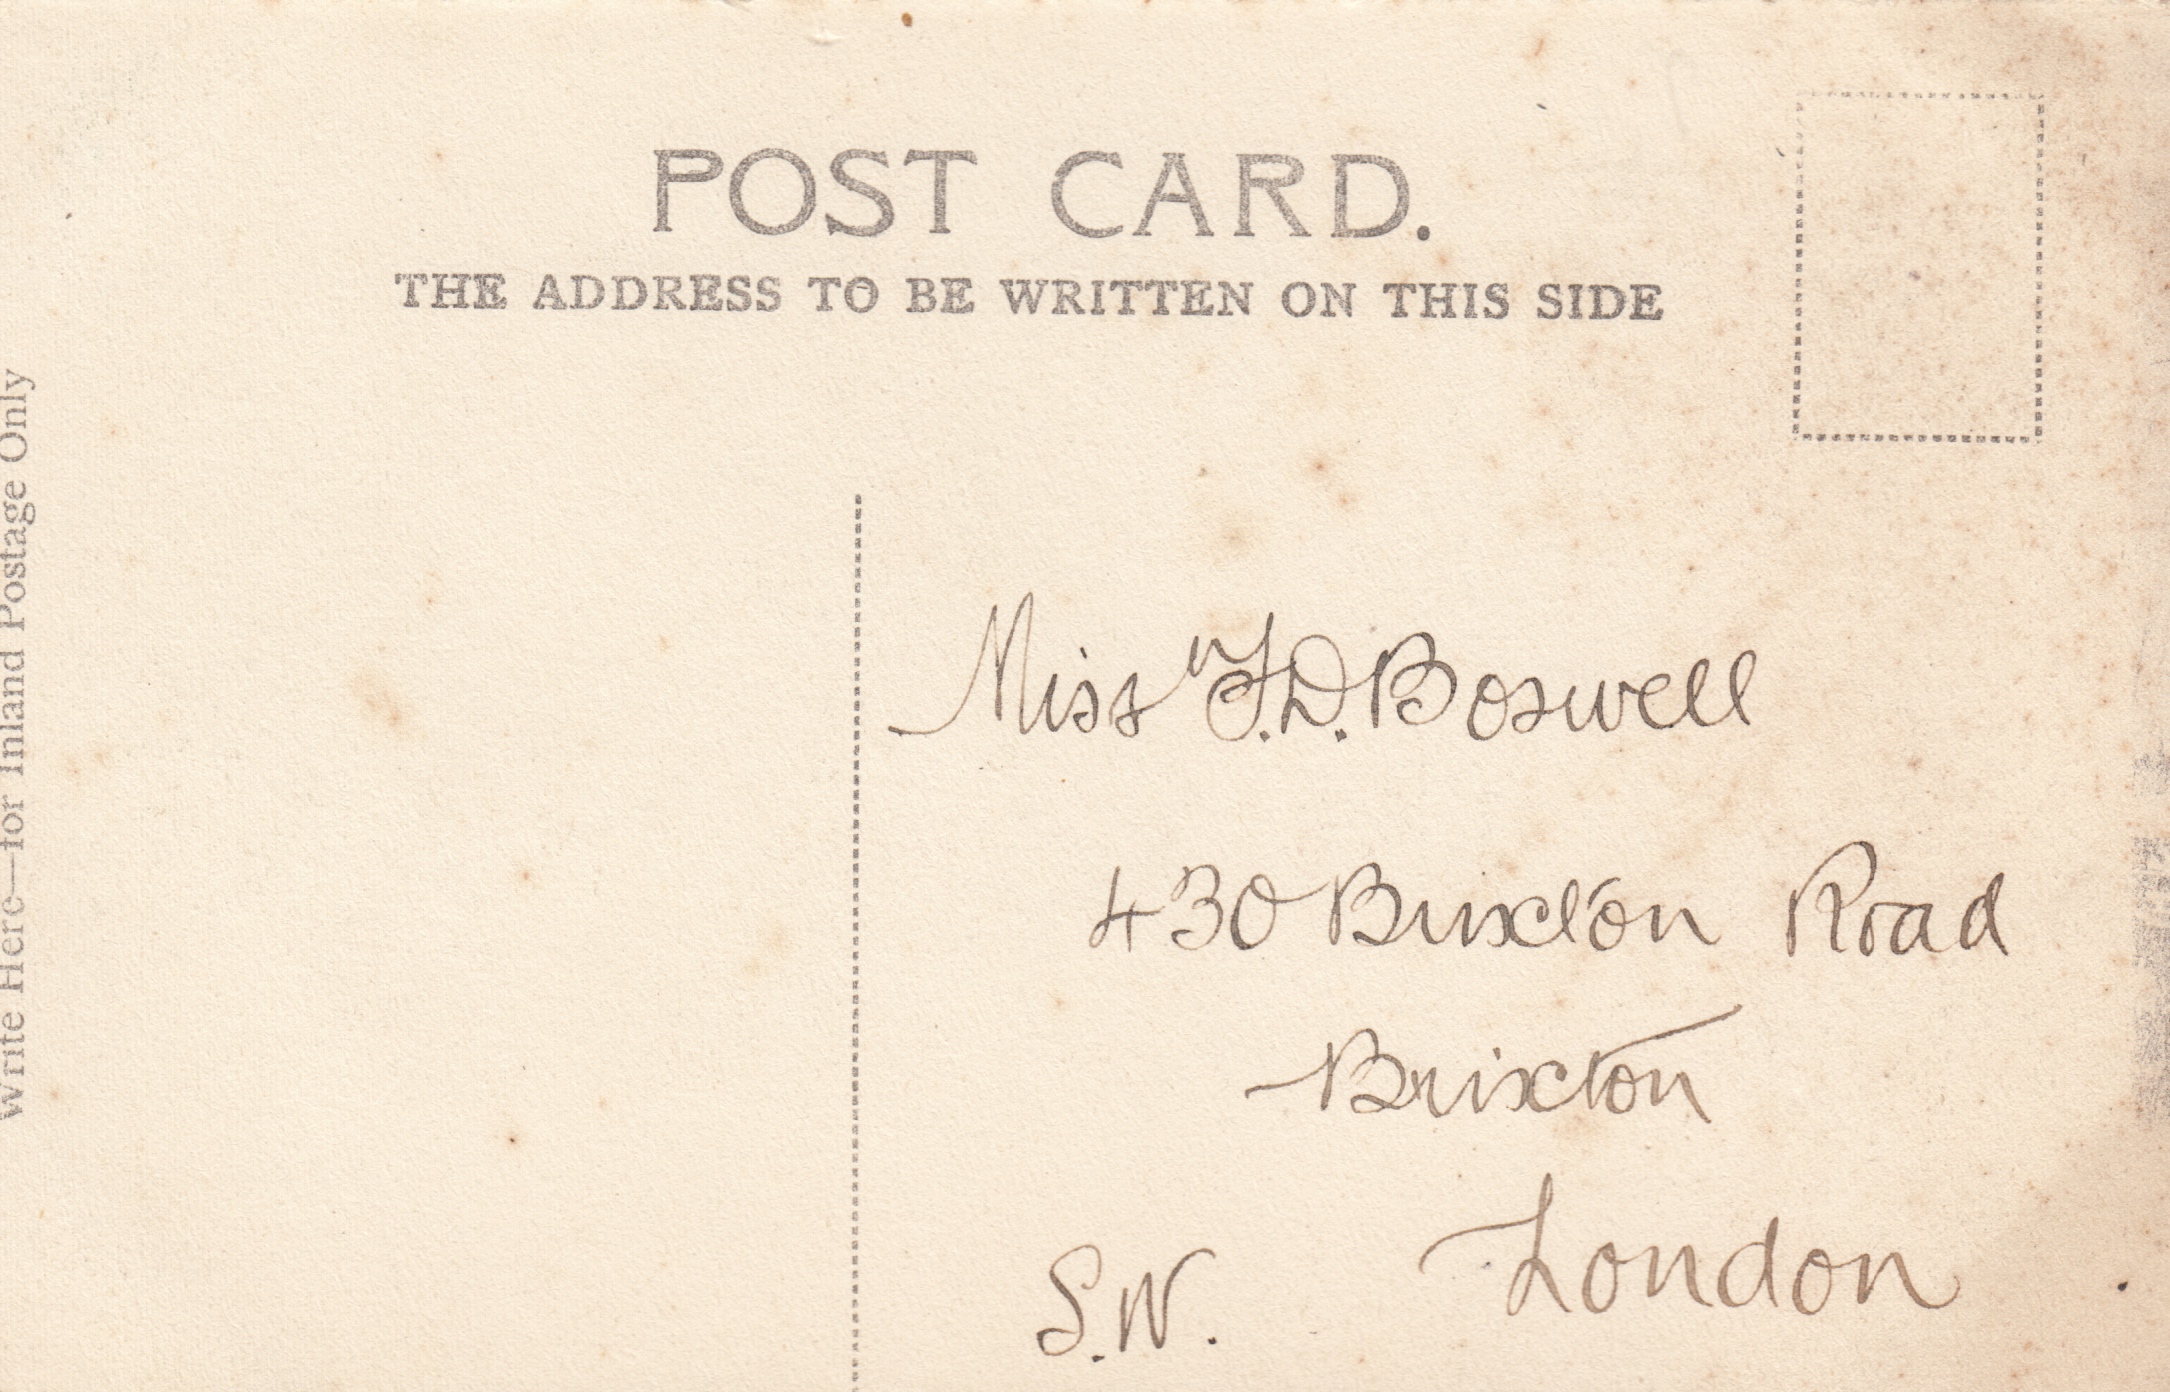 POST CARD.
THE ADDRESS TO BE WRITTEN ON THIS SIDE
Write Here—for Inland Postage Only
Miss F.D. Boswell
430 Brixton Road
Brixton
London
S.W.